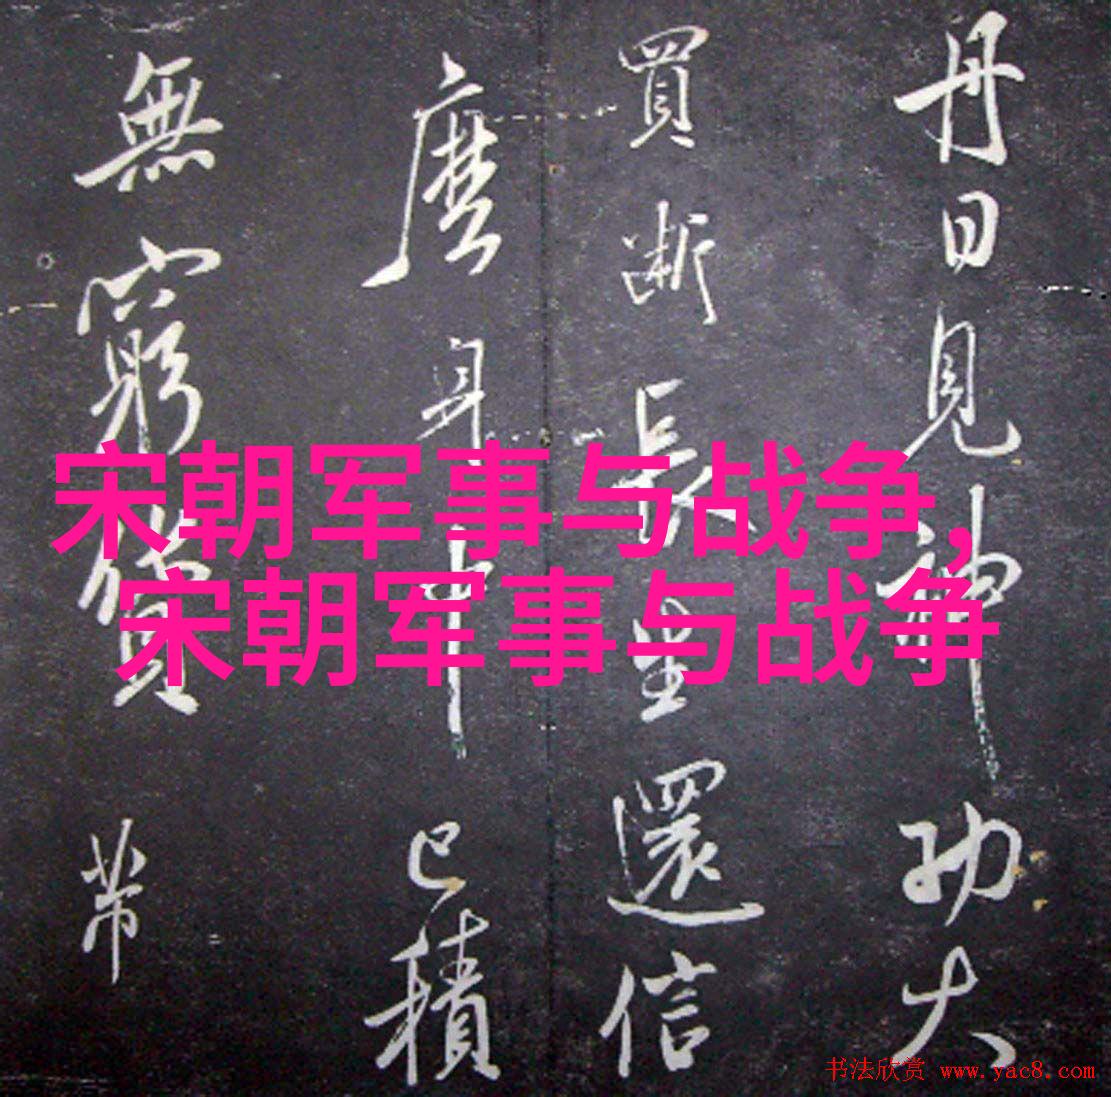 丹日見神功大
買斷長生還信
麼身中已積
無窮貨
宋朝军事与战争,
宋朝军事与战争
书法欣赏 www.yac8.com